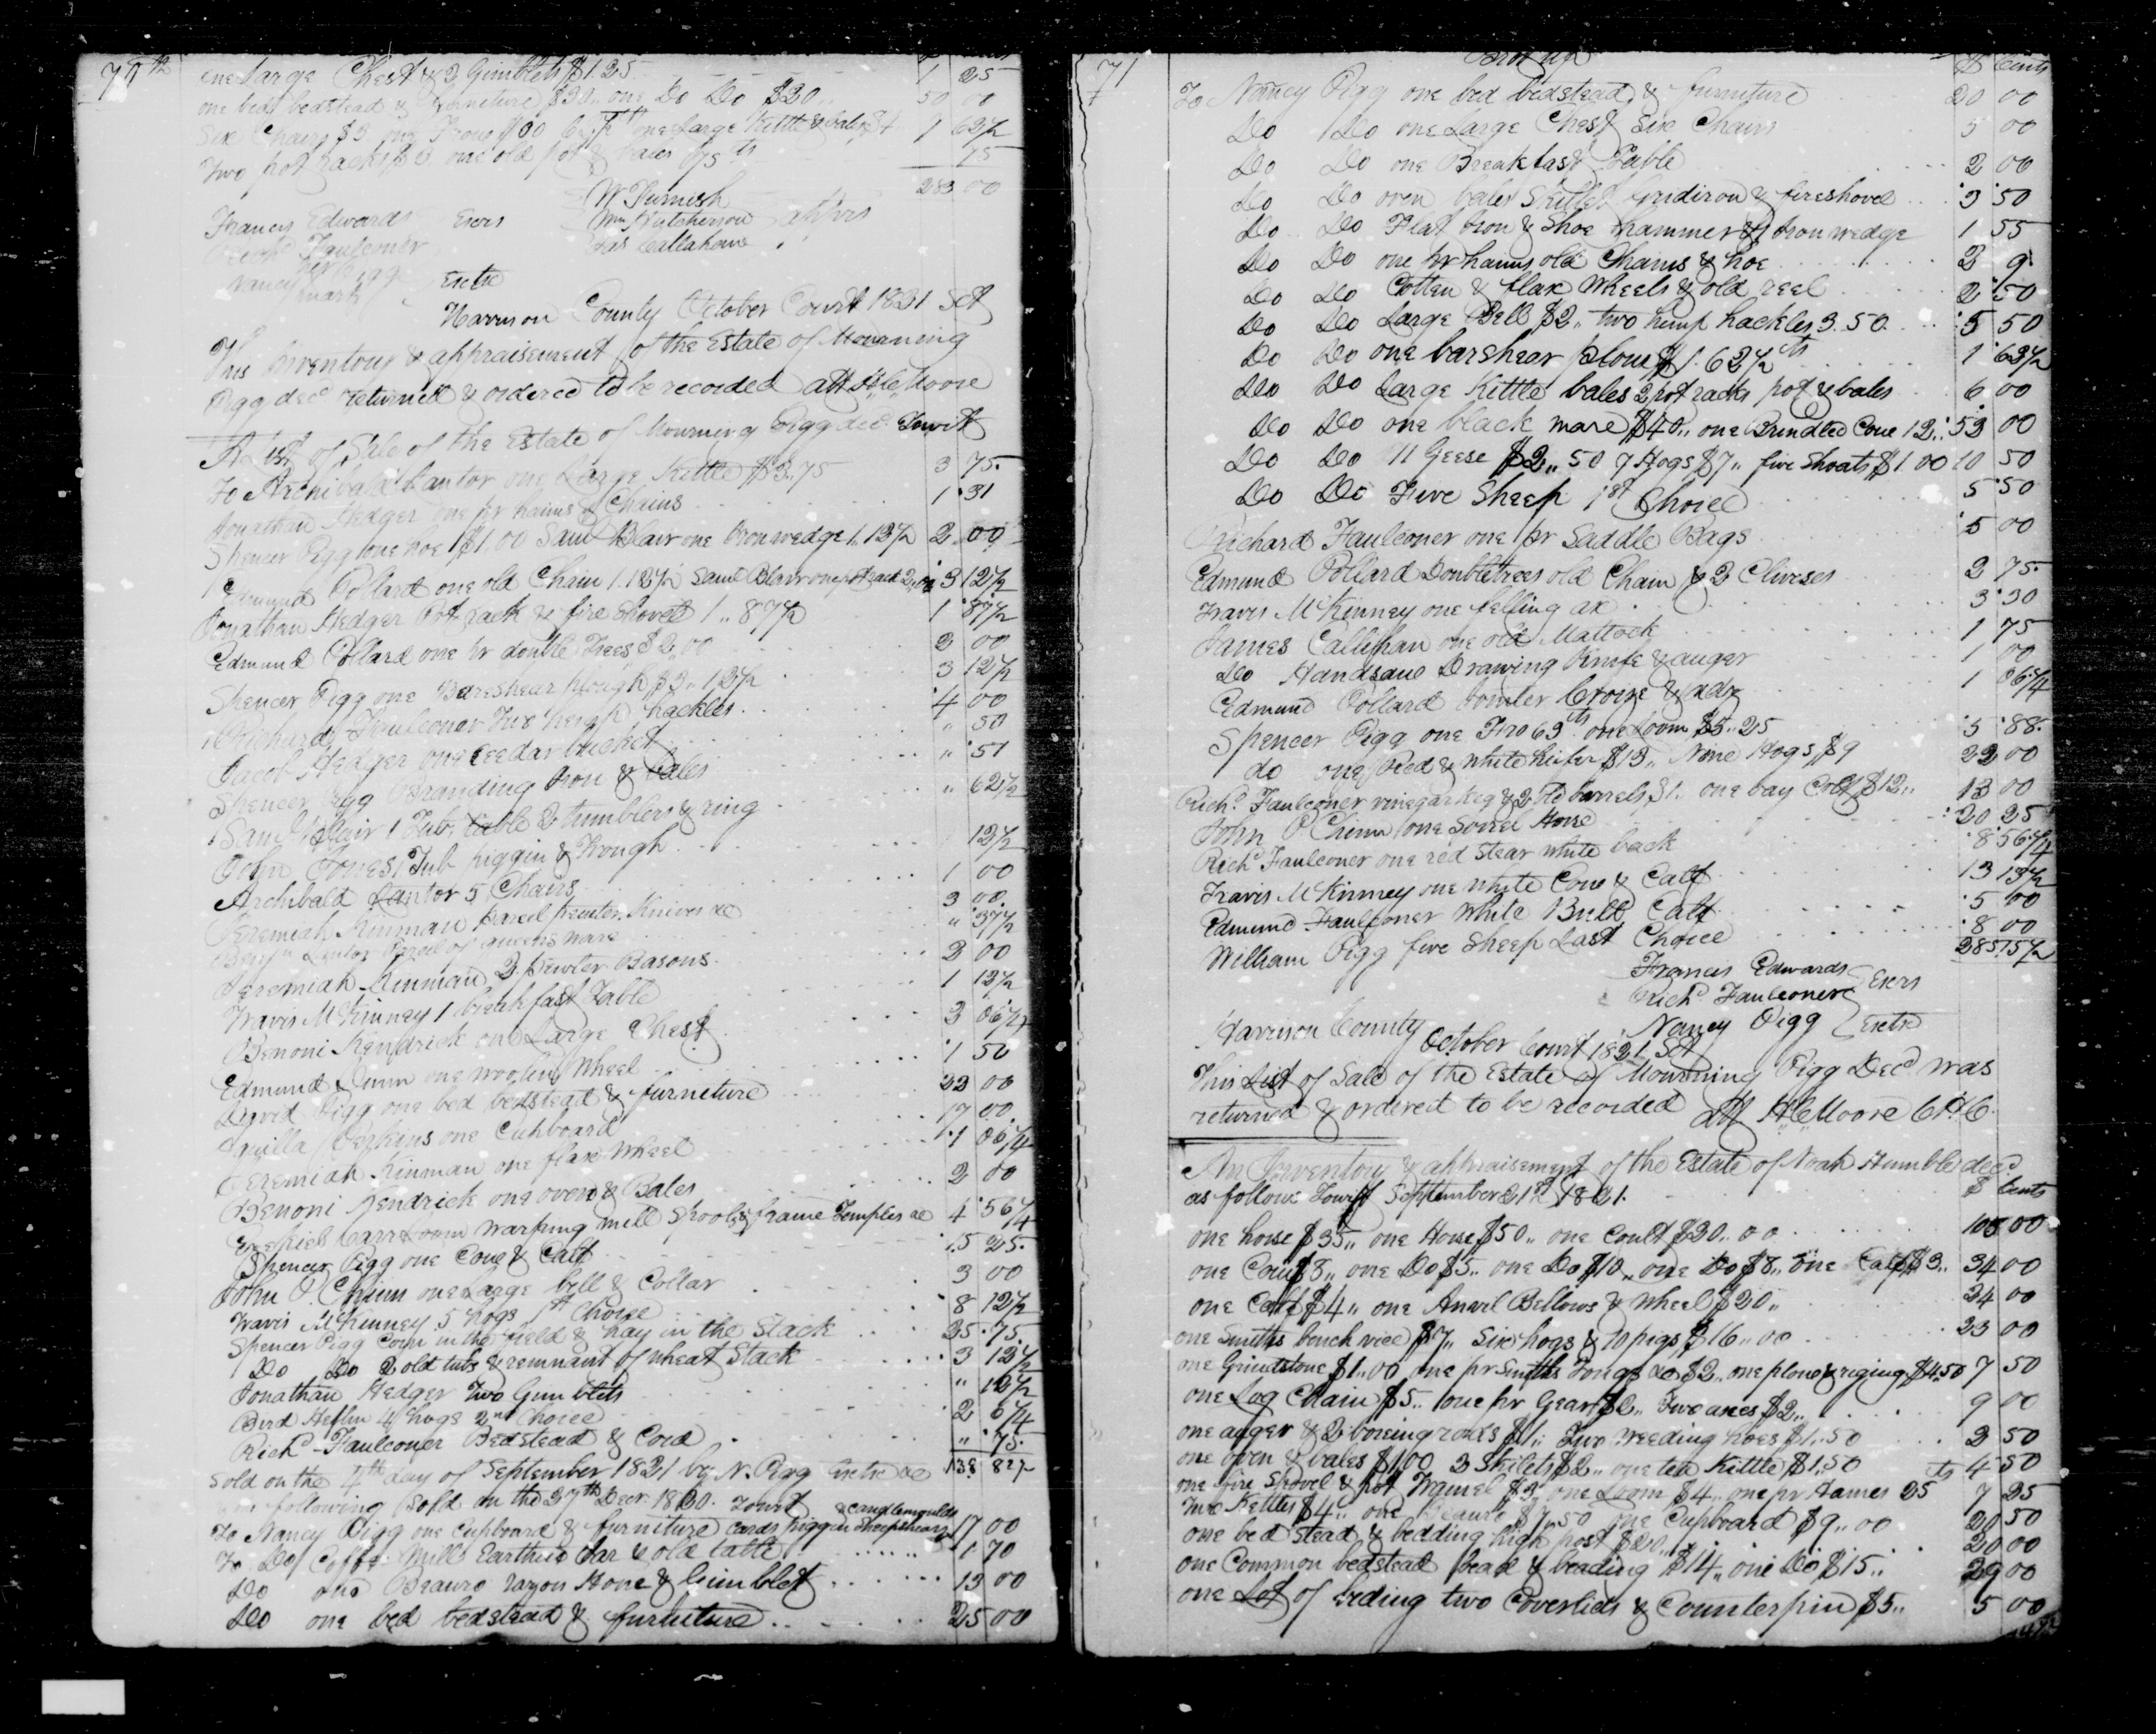 70th
one large Chest & 2 Gimblets $1.25 1 25
one bed bedstead & furneture $30,, one Do Do $20,, 50 00
Six Chairs $3 one large Kettle & bales $4 62½
Two pot racks $3 one old pot & bales 75 cts 75
283 00
W Furnish
Wm Hutcherson apprs
Jas Callahan
Francis Edwards Exers
Richd Faulconer
Nancy her mark Pigg Exetx
Harrison County October Court 1821 Sct
This Inventory & appraisement of the Estate of Mourning
Pigg decd returned & ordered to be recorded att H C Moore
A List of Sale of the Estate of Mourning Pigg decd Towit
To Archibald Cantor one Large Kettle $3.75 3 75
Jonathan Hedger one pr hams & Chains 1 31
Spencer Pigg one hoe $1 00 Saml Blair one Iron wedge 1. 13½ 2 00
Edmund Pollard one old Chain 1.12½ Saml Blair one pot rack 2,,00 3 12½
Jonathan Hedger Pot rack & fire Shovel 1,,87½ 1 87½
Edmund Pollard one pr double Trees $2,00 2 00
Spencer Pigg one Bareshear plough $3,,12½ 3 12½
Richard Faulconer Two hemp hackles 4 00
Jacob Hedger one Ceedar bucket ,, 50
Spencer Pigg Branding Iron & bales ,, 51
Saml Blair 1 Tub, table 2 tumblers & ring ,, 62½
John Jones 1 Tub piggin & Trough 12½
Archibald Cantor 5 Chairs 1 00
Jeremiah Kinman parcel pewter Knives &c 3 00
Benjn Cantor Parcel of queens ware ,, 37½
Jeremiah Kinman 3 pewter Basons 2 00
Travis McKinney 1 breakfast Table 1 12½
Benoni Kendrick one Large Chest 3 06¼
Edmund Chinn one woolen Wheel 1 50
David Pigg one bed bedstead & furneture 22 00
Aquilla Perkins one Cubboard 17 00
Jeremiah Kinman one flax wheel 1 06¼
Benoni Kendrick one oven & Bales 2 00
Ezekiel Carr Loom warping mill Spools & frame Temples &c 4 56¼
Spencer Pigg one Cow & Calf 15 25
John P Chinn one Large bell & Collar 3 00
Travis McKinney 5 hogs 1st Choice 8 12½
Spencer Pigg Corn in the field & hay in the Stack 25 75
Do Do 2 old tubs & remnant of wheat Stack 3 12½
Jonathan Hedger Two Gimblets ,, 12½
Bird Heflin 4 hogs 2nd Choice 2 6¼
Richd Faulconer Bedstead & Cord ,, 75
Sold on the 4th day of September 1821 by N. Pigg Exetx &c 138 82½
following Sold on the 27th Decr 1820. Towit
& candlemoulds
To Nancy Pigg one Cupboard & furniture Cards Piggin Sheepshears 17 00
To Do Coffe Mills Earthen Jar & old table 1 70
Do one Beauro razors Hone & Gimblet 13 00
Do one bed bedstead & furniture 25 00
71
Brot up $ Cents
To Nancy Pigg one bed bedstead & furniture 20 00
Do Do one Large Chest Six Chairs 5 00
Do Do one Breakfast Table 2 00
Do Do oven bales Skillet gridiron & fireshovel 3 50
Do Do Flat Iron & Shoe hammer & Iron wedge 1 55
Do Do one pr hams old Chams & hoe 3 9
Do Do Cotten & flax Wheels & old reel 2 50
Do Do Large Bell $2,, two hemp hackles 3.50 5 50
Do Do one barshear plow $1.62½ cts 1 62½
Do Do Large Kettle bales 2 pot racks pot & bales 6 00
Do Do one black mare $40,, one Brindled Cow 12,, 52 00
Do Do 11 Geese $2,,50 7 Hogs $7,, five Shoats $1 00 10 50
Do Do Five Sheep 1st Choice 5 50
Richard Faulconer one pr Saddle Bags 5 00
Edmund Pollard Doubletrees old Chain & 2 Cliveses 2 75
Travis McKinney one felling ax 3 30
James Callihan one old Mattock 1 75
Do Handsaw Drawing Knife & auger 1 00
Edmund Pollard Croize & adz 1 06¼
Spencer Pigg one Fro 63 cts one Loom $5.25 5 88
do one Red & white heifer $13,, Nine Hogs $9 22 00
Richd Faulconer vinegar keg & 2 old barrels $1. one bay Colt $12,, 13 00
John P Chinn one Sorrel Horse 20 25
Richd Faulconer one red Stear white back 8 56¼
Travis McKinney one white Cow & Calf 13 13½
Edmund Faulconer White Bull Calf 5 00
William Pigg five Sheep Last Choice 8 00
285 15½
Francis Edwards
Richd Faulconer Exers
Nancy Pigg Exetx
Harrison County October Court 1821 Sct
This List of Sale of the Estate of Mourning Pigg Decd was
returned & ordered to be recorded Att H C Moore C H C
An Inventory & appraisement of the Estate of Noah Humble decd
as follows Towit September 21st 1821. $ Cents
one horse $35,, one Horse $50,, one Coult $20,,00 105 00
one Cow $8,, one Do $5,, one Do $10,, one Do $8,, one Calf $3,, 34 00
one Calf $4,, one Anvil Bellows & Wheel $20,, 24 00
one Smiths bench vice $7,, Six hogs & 10 pigs $16,,00 23 00
one Grindstone $1,,00 one pr Smiths Tongs &c $2,, one plow & riging $4.50 7 50
one Log Chain $5,, one pr Gears $2,, Two axes $2,, 9 00
one auger & 2 boreing rods $1,, Two Weeding hoes $1,,50 2 50
one oven & bales $1,00 3 Skilets $2,, one tea Kettle $1,,50 4 50
one fire Shovel & pot Tramel $3 one Loom $4,, one pr Hames 25 cts 7 25
two Kettles $4,, one Beauro $7,,50 one Cupboard $9,,00 20 50
one bed stead & bedding high post $20,, 20 00
one Common bedstead bead & beading $14,, one Do $15,, 29 00
one Lot of Beding two Coverlids & Counterpin $5,, 5 00